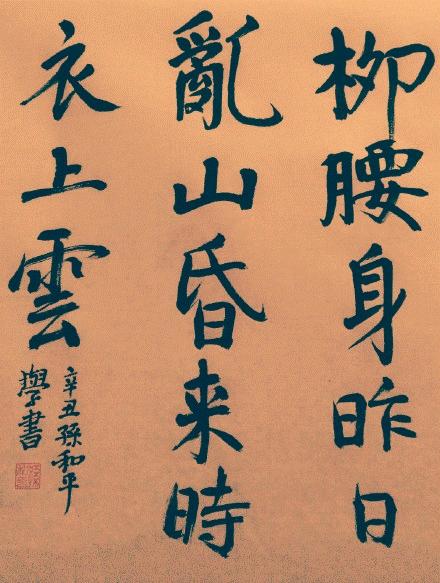 柳腰身昨日
亂山昏来時
衣上雲
辛丑孫和平
學書